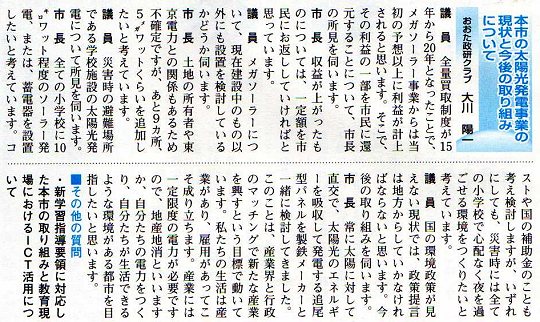 本市の太陽光発電事業の
現状と今後の取り組み
について
おおた政研クラブ 大川 陽一
議員 全量買取制度が15
年から20年となったことで、
メガソーラー事業からは当
初の予想以上に利益が計上
されると思います。そこで、
その利益の一部を市民に還
元することについて、市長
の所見を伺います。
市長 収益が上がったも
のについては、一定額を市
民にお返ししていければと
思っています。
議員 メガソーラーにつ
いて、現在建設中のもの以
外にも設置を検討している
かどうか伺います。
市長 土地の所有者や東
京電力との関係もあるため
不確定ですが、あと9カ所、
5㍋ワットくらいを追加し
たいと考えています。
議員 災害時の避難場所
である学校施設の太陽光発
電について所見を伺います。
市長 全ての小学校に10
㌔ワット程度のソーラー発
電、または、蓄電器を設置
したいと考えています。コ
ストや国の補助金のことも
考え検討しますが、いずれ
にしても、災害時には全て
の小学校で心配なく夜を過
ごせる環境をつくりたいと
考えています。
議員 国の環境政策が見
えない現状では、政策提言
は地方からしていかなけれ
ばならないと思います。今
後の取り組みを伺います。
市長 常に太陽に対して
直交で、太陽光のエネルギ
ーを吸収して発電する追尾
型パネルを製鉄メーカーと
一緒に検討してきました。
このことは、産業界と行政
のマッチングで新たな産業
を興すという目標で動いて
います。私たちの生活は産
業があり、雇用があってこ
そ成り立ちます。産業には
一定限度の電力が必要です
ので、地産地消といいます
か、自分たちの電力をつく
り、自分たちが生活できる
ような環境がある都市を目
指したいと思います。
■その他の質問
・新学習指導要領に対応し
た本市の取り組みと教育現
場におけるICT活用につ
いて